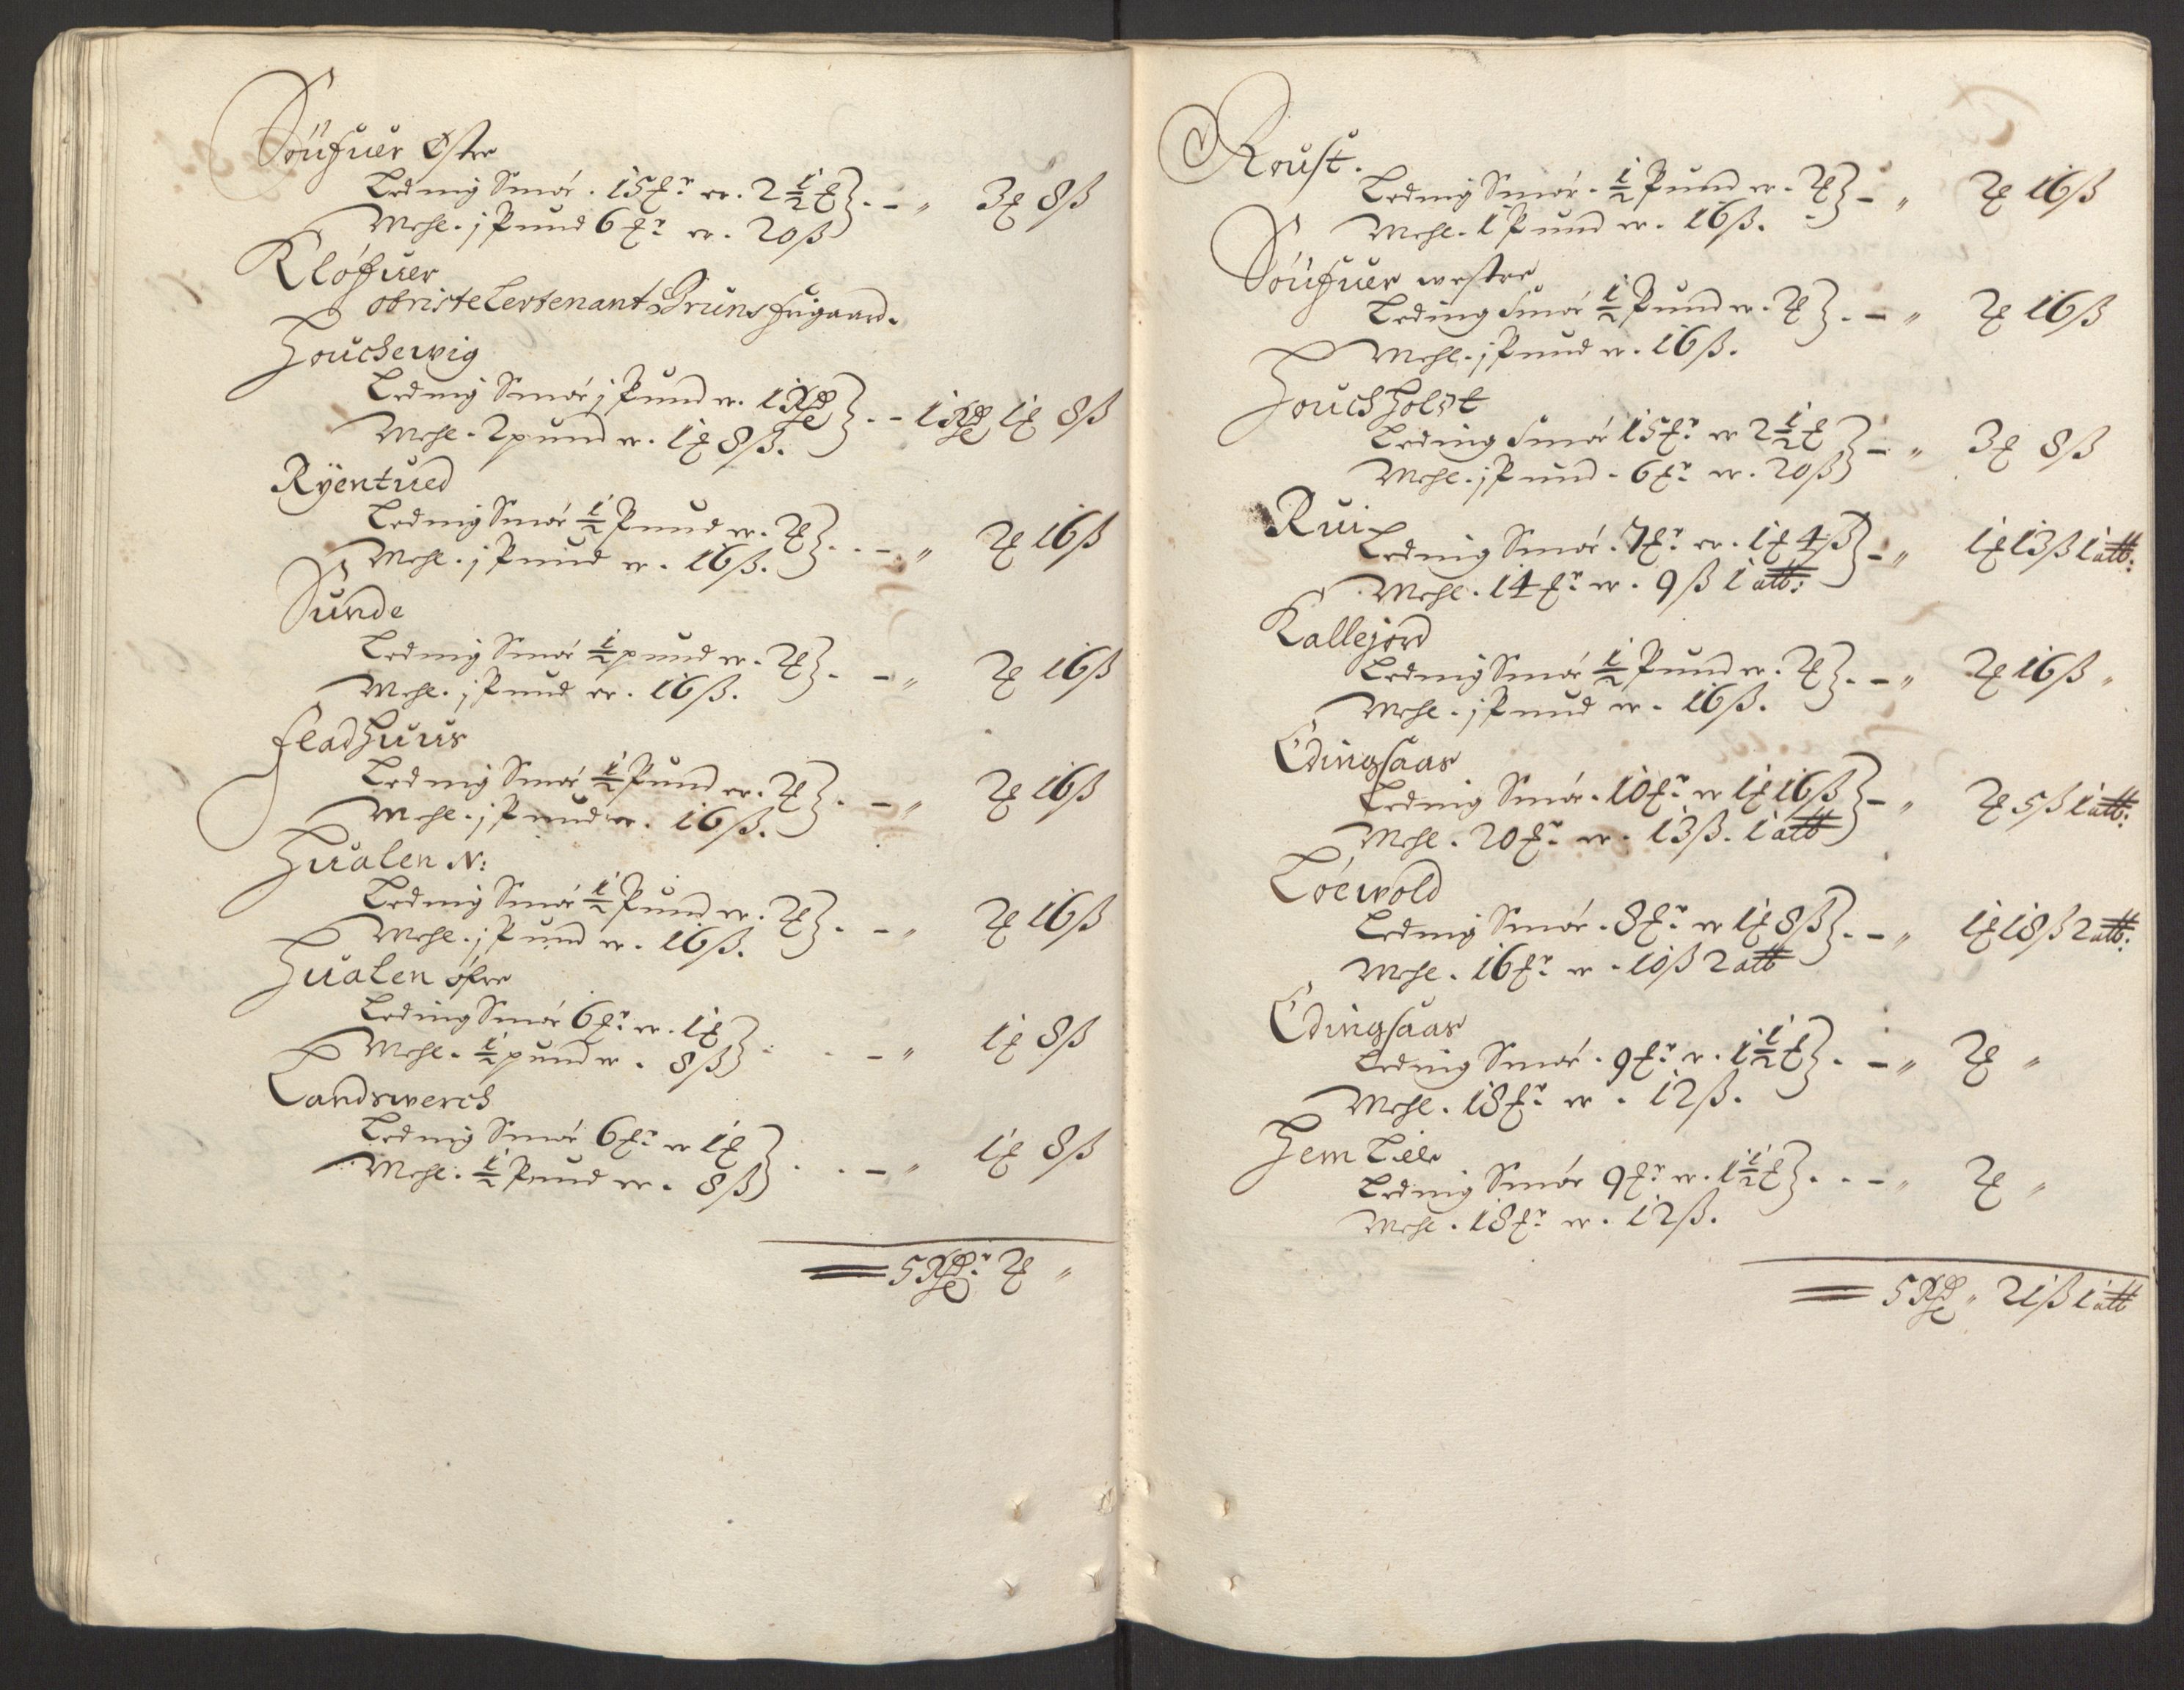 Söüfuer Østre
Leding Smör . 15 ℔r er . 2 1/2 ℔ } . - „ 3 ℔ 8 ß
Mehl . j Pund 6 ℔r er . 20 ß
Klöfuer
obriste Leutenant Bruns frigaard.
Houchewig
Leding Smör j Pund er . 1 Rdr } . - 1 Rdr 1 ℔ 8 ß
Mehl . 2 pund er . 1 ℔ 8 ß.
Ryentued
Leding Smör 1/2 Pund er . 2 ℔ } . . - „ 2 ℔ 16 ß
Mehl . j Pund er . 16 ß.
Sunde
Leding Smör 1/2 pund er . 2 ℔ } . - „ 2 ℔ 16 ß
Mehl . j Pund er . 16 ß.
Fladhuus
Leding Smör 1/2 Pund er . 2 ℔ } . - „ 2 ℔ 16 ß
Mehl . j Pund er . 16 ß.
Hualen N:
Leding Smör 1/2 Pund er . 2 ℔ } . - „ 2 ℔ 16 ß
Mehl . j Pund er . 16 ß.
Hualen öfre
Leding Smör 6 ℔r er . 1 ℔ } . . - „ 1 ℔ 8 ß
Mehl . 1/2 pund er . 8 ß
Landswerch
Leding Smör 6 ℔r er 1 ℔ } . . - „ 1 ℔ 8 ß
Mehl . 1/2 Pund er . 8 ß
5 Rdr 2 ℔ „
Roust.
Leding Smör . 1/2 Pund er . 2 ℔ } - „ 2 ℔ 16 ß
Mehl . 1 Pund er . 16 ß.
Söüfuer westre
Leding Smör 1/2 Pund er . 2 ℔ } . - „ 2 ℔ 16 ß
Mehl . j Pund er . 16 ß.
Houchholdt
Leding Smör 15 ℔r er 2 1/2 ℔ } - „ 3 ℔ 8 ß
Mehl . j Pund . 6 ℔r er . 20 ß
Rui
Leding Smör . 7 ℔r er . 1 ℔ 4 ß } - „ 1 ℔ 13 ß 1 alb:
Mehl . 14 ℔r er . 9 ß 1 alb:
Kallejord
Leding Smör 1/2 Pund er . 2 ℔ } . - „ 2 ℔ 16 ß „
Mehl . j Pund er . 16 ß.
Edingsaas
Leding Smör . 10 ℔r er 1 ℔ 16 ß } - „ 2 ℔ 5 ß 1 alb:
Mehl . 20 ℔r er . 13 ß . 1 alb
Löewold
Leding Smör . 8 ℔r er 1 ℔ 8 ß } . - „ 1 ℔ 18 ß 2 alb:
Mehl . 16 ℔r er . 10 ß 2 alb
Edingsaas
Leding Smör . 9 ℔r er . 1 1/2 ℔ } . - „ 2 ℔ „
Mehl . 18 ℔r er . 12 ß.
Hem Lier
Leding Smör 9 ℔r er . 1 1/2 ℔ } . . - „ 2 ℔ „
Mehl . 18 ℔r er . 12 ß.
5 Rdr „ 21 ß 1 alb